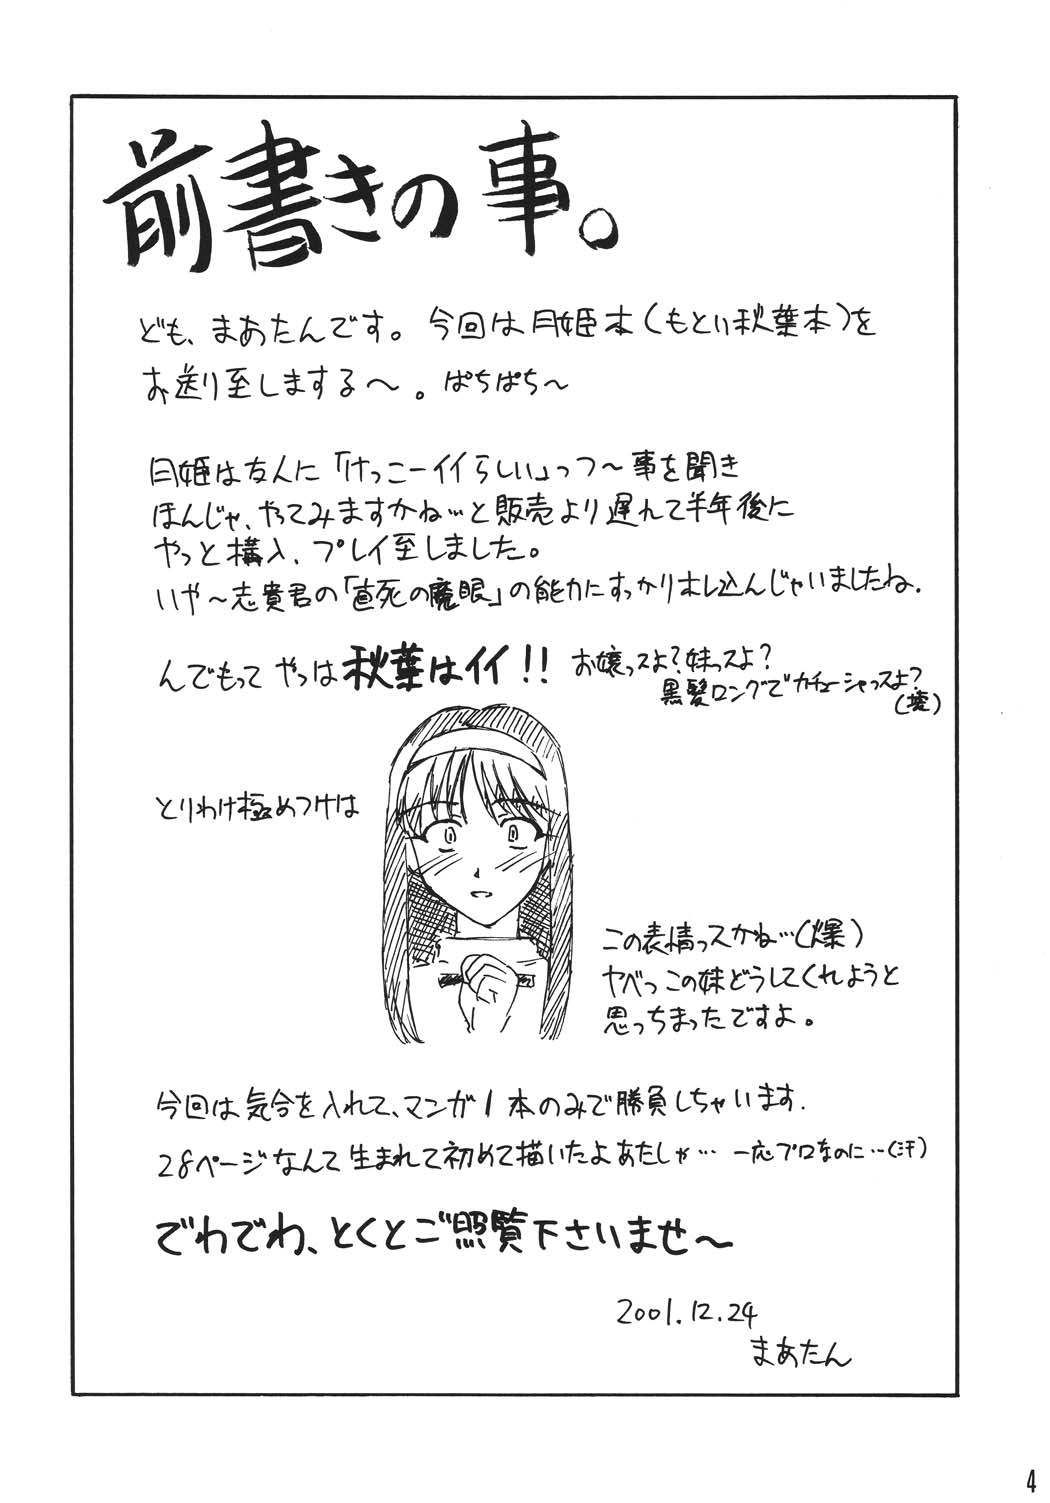 前書きの事。
ども、まあたんです。今回は月姫本(もとい秋葉本)を
お送り至しまする～。ぱちぱち～
月姫は友人に「けっこーイイらしい」っつ～事を聞き
ほんじゃ、やってみますかね…と販売より遅れて半年後に
やっと購入、プレイ至しました。
いや～志貴君の「直死の魔眼」の能力にすっかりホレ込んじゃいましたね.
んでもって やっぱ秋葉はイイ!! お嬢っスよ?妹っスよ?
黒髪ロングでカチューシャっスよ?
(壊)
とりわけ極めつけは
この表情っスかね…(爆)
ヤベっこの妹どうしてくれようと
思っちまったですよ。
今回は気合を入れて、マンガ1本のみで勝負しちゃいます.
28ページなんて生まれて初めて描いたよあたしゃ… 一応プロなのに…(汗)
でわでわ、とくとご照覧下さいませ～
2001.12.24
まあたん
4